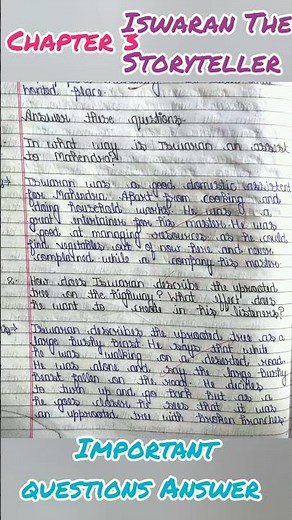 Chapter 3 Iswaran The Storyteller
honted place.
Answer these questions.
In what way is Iswaran an asset
to Mahendra?
Iswaran was a good domestic assistent
for Mahendra. Apart from cooking and
doing household works. He was a
great intertainor for his master. He was
good at managing resources as he could
find vegetables out of now time and never
complained while a company his master
2. How does Iswaran describe the uprooted
tree on the highway? What effect does
he want to create in his listeners?
Iswaran describes the uprooted tree as a
large bushy beast. He says that while
he was walking on a deserted road.
He was alone and say the large bushy
beast fallen on the road. He decides
to turn up and go back but as a
he goes closer he sees that it was
an upprooted tree with broken branches
Important
questions Answer